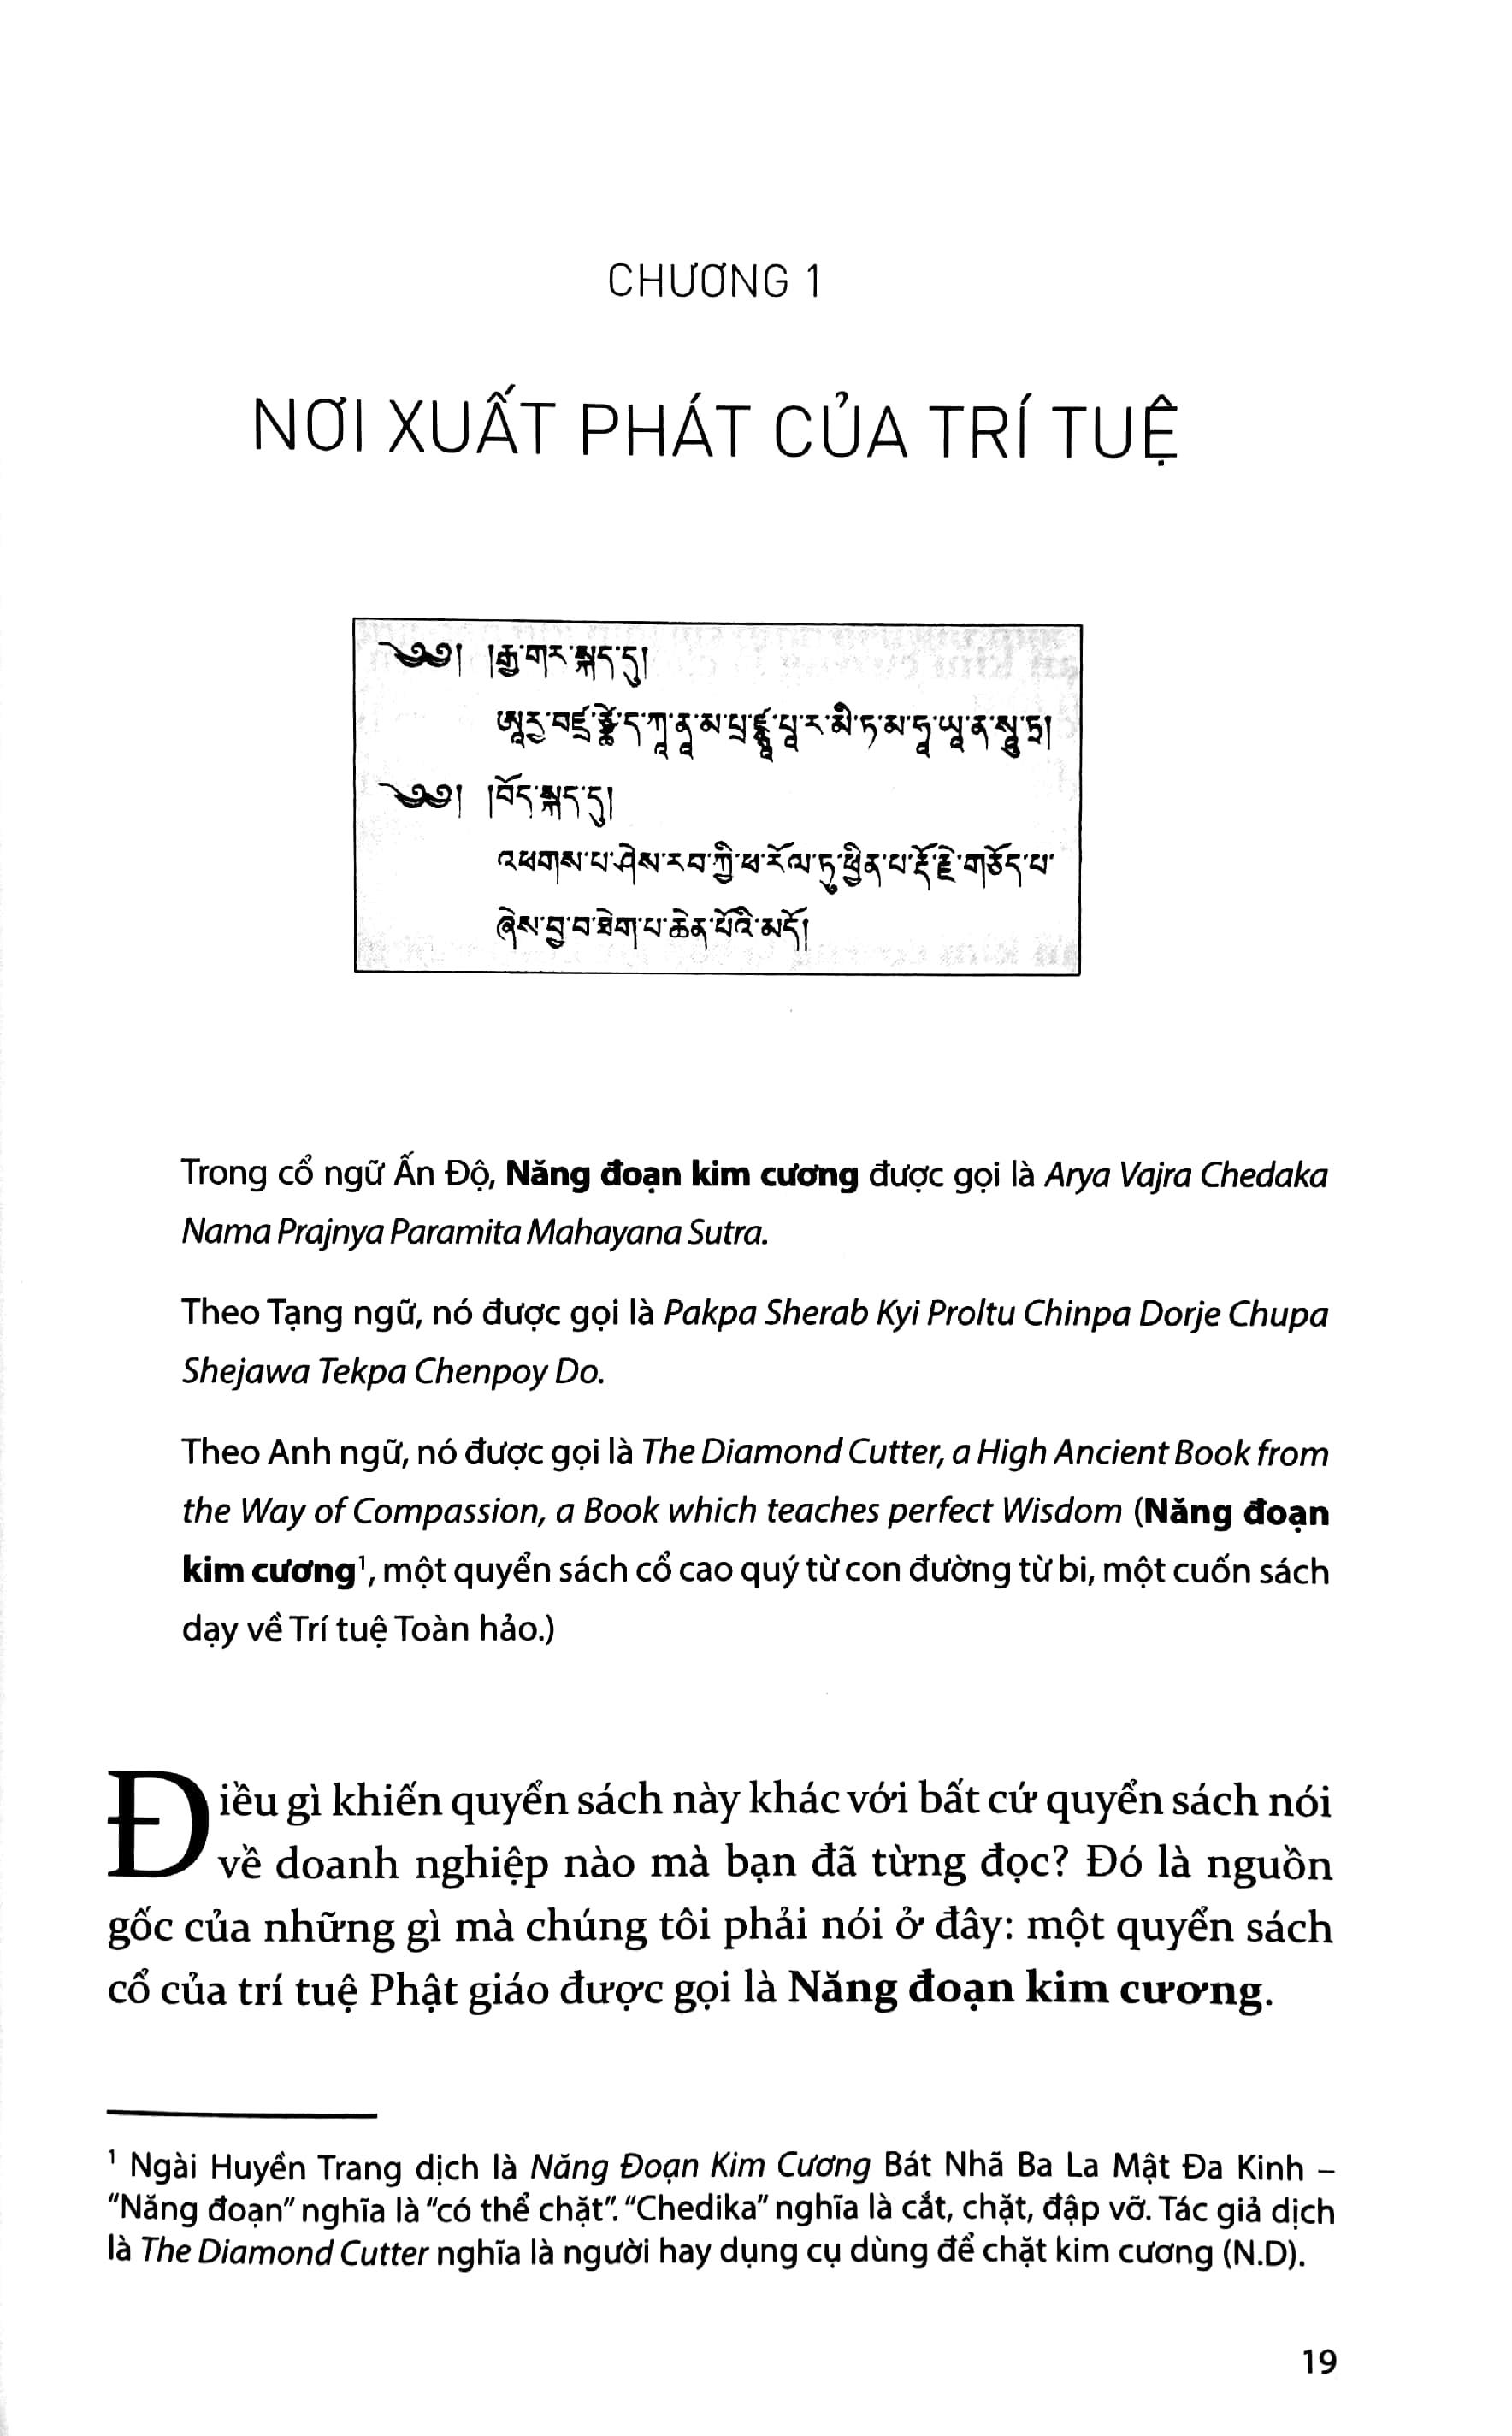 CHƯƠNG 1
NƠI XUẤT PHÁT CỦA TRÍ TUỆ
༄༅། །རྒྱ་གར་སྐད་དུ།
ཨཱརྱ་བཛྲ་ཙྪེད་ཀཱ་ནཱ་མ་པྲ་ཛྙཱ་པཱ་ར་མི་ཏ་མ་ཧཱ་ཡཱ་ན་སཱུ་ཏྲ།
༄༅། །བོད་སྐད་དུ།
འཕགས་པ་ཤེས་རབ་ཀྱི་ཕ་རོལ་ཏུ་ཕྱིན་པ་རྡོ་རྗེ་གཅོད་པ་
ཞེས་བྱ་བ་ཐེག་པ་ཆེན་པོའི་མདོ།
Trong cổ ngữ Ấn Độ, Năng đoạn kim cương được gọi là Arya Vajra Chedaka
Nama Prajnya Paramita Mahayana Sutra.
Theo Tạng ngữ, nó được gọi là Pakpa Sherab Kyi Proltu Chinpa Dorje Chupa
Shejawa Tekpa Chenpoy Do.
Theo Anh ngữ, nó được gọi là The Diamond Cutter, a High Ancient Book from
the Way of Compassion, a Book which teaches perfect Wisdom (Năng đoạn
kim cương¹, một quyển sách cổ cao quý từ con đường từ bi, một cuốn sách
dạy về Trí tuệ Toàn hảo.)
Điều gì khiến quyển sách này khác với bất cứ quyển sách nói
về doanh nghiệp nào mà bạn đã từng đọc? Đó là nguồn
gốc của những gì mà chúng tôi phải nói ở đây: một quyển sách
cổ của trí tuệ Phật giáo được gọi là Năng đoạn kim cương.
¹ Ngài Huyền Trang dịch là Năng Đoạn Kim Cương Bát Nhã Ba La Mật Đa Kinh –
"Năng đoạn" nghĩa là "có thể chặt". "Chedika" nghĩa là cắt, chặt, đập vỡ. Tác giả dịch
là The Diamond Cutter nghĩa là người hay dụng cụ dùng để chặt kim cương (N.D).
19